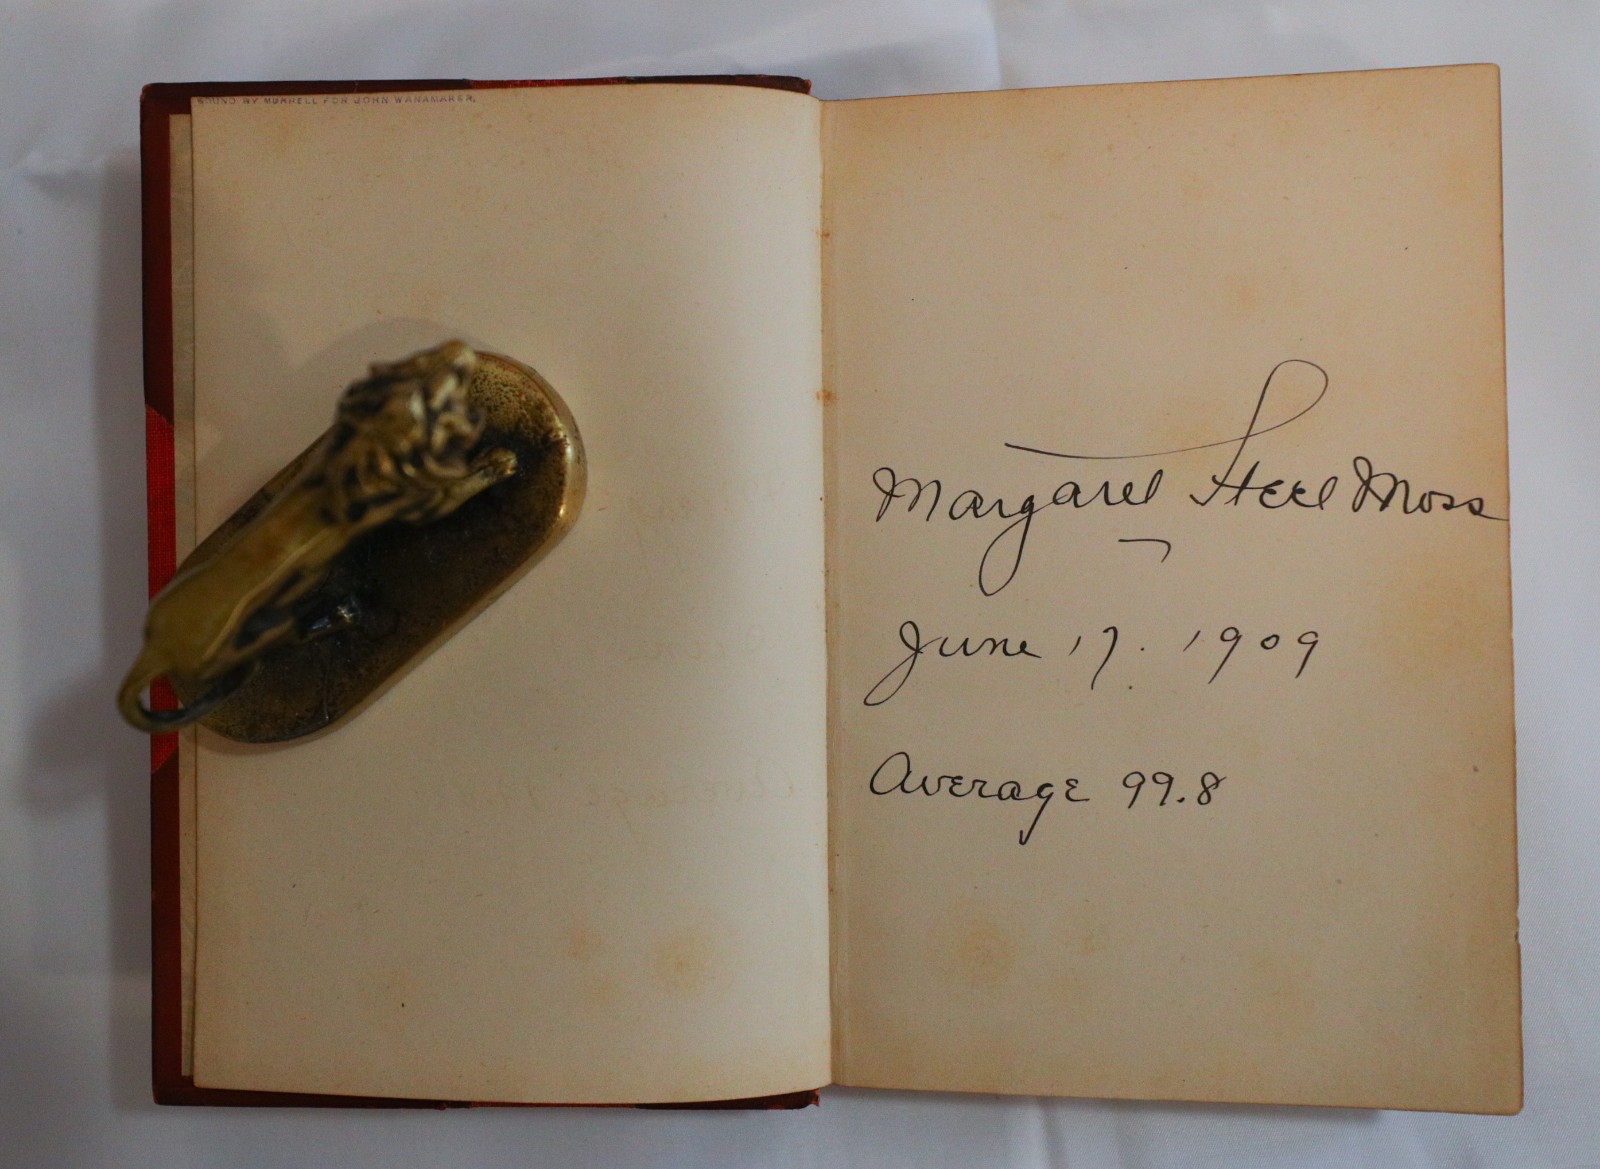 BOUND BY MURRELL FOR JOHN WANAMAKER.
Margaret Steel Moss
June 17. 1909
Average 99.8